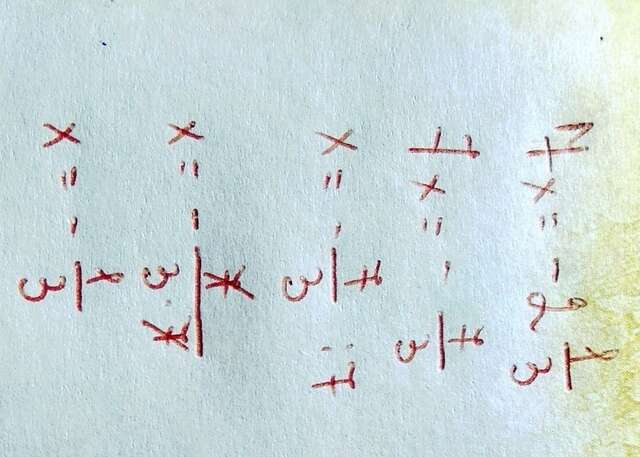 7x = -2 1/3
7x = - 7/3
x = - 7/3 : 7
x = - 7/(3·7)
x = - 1/3